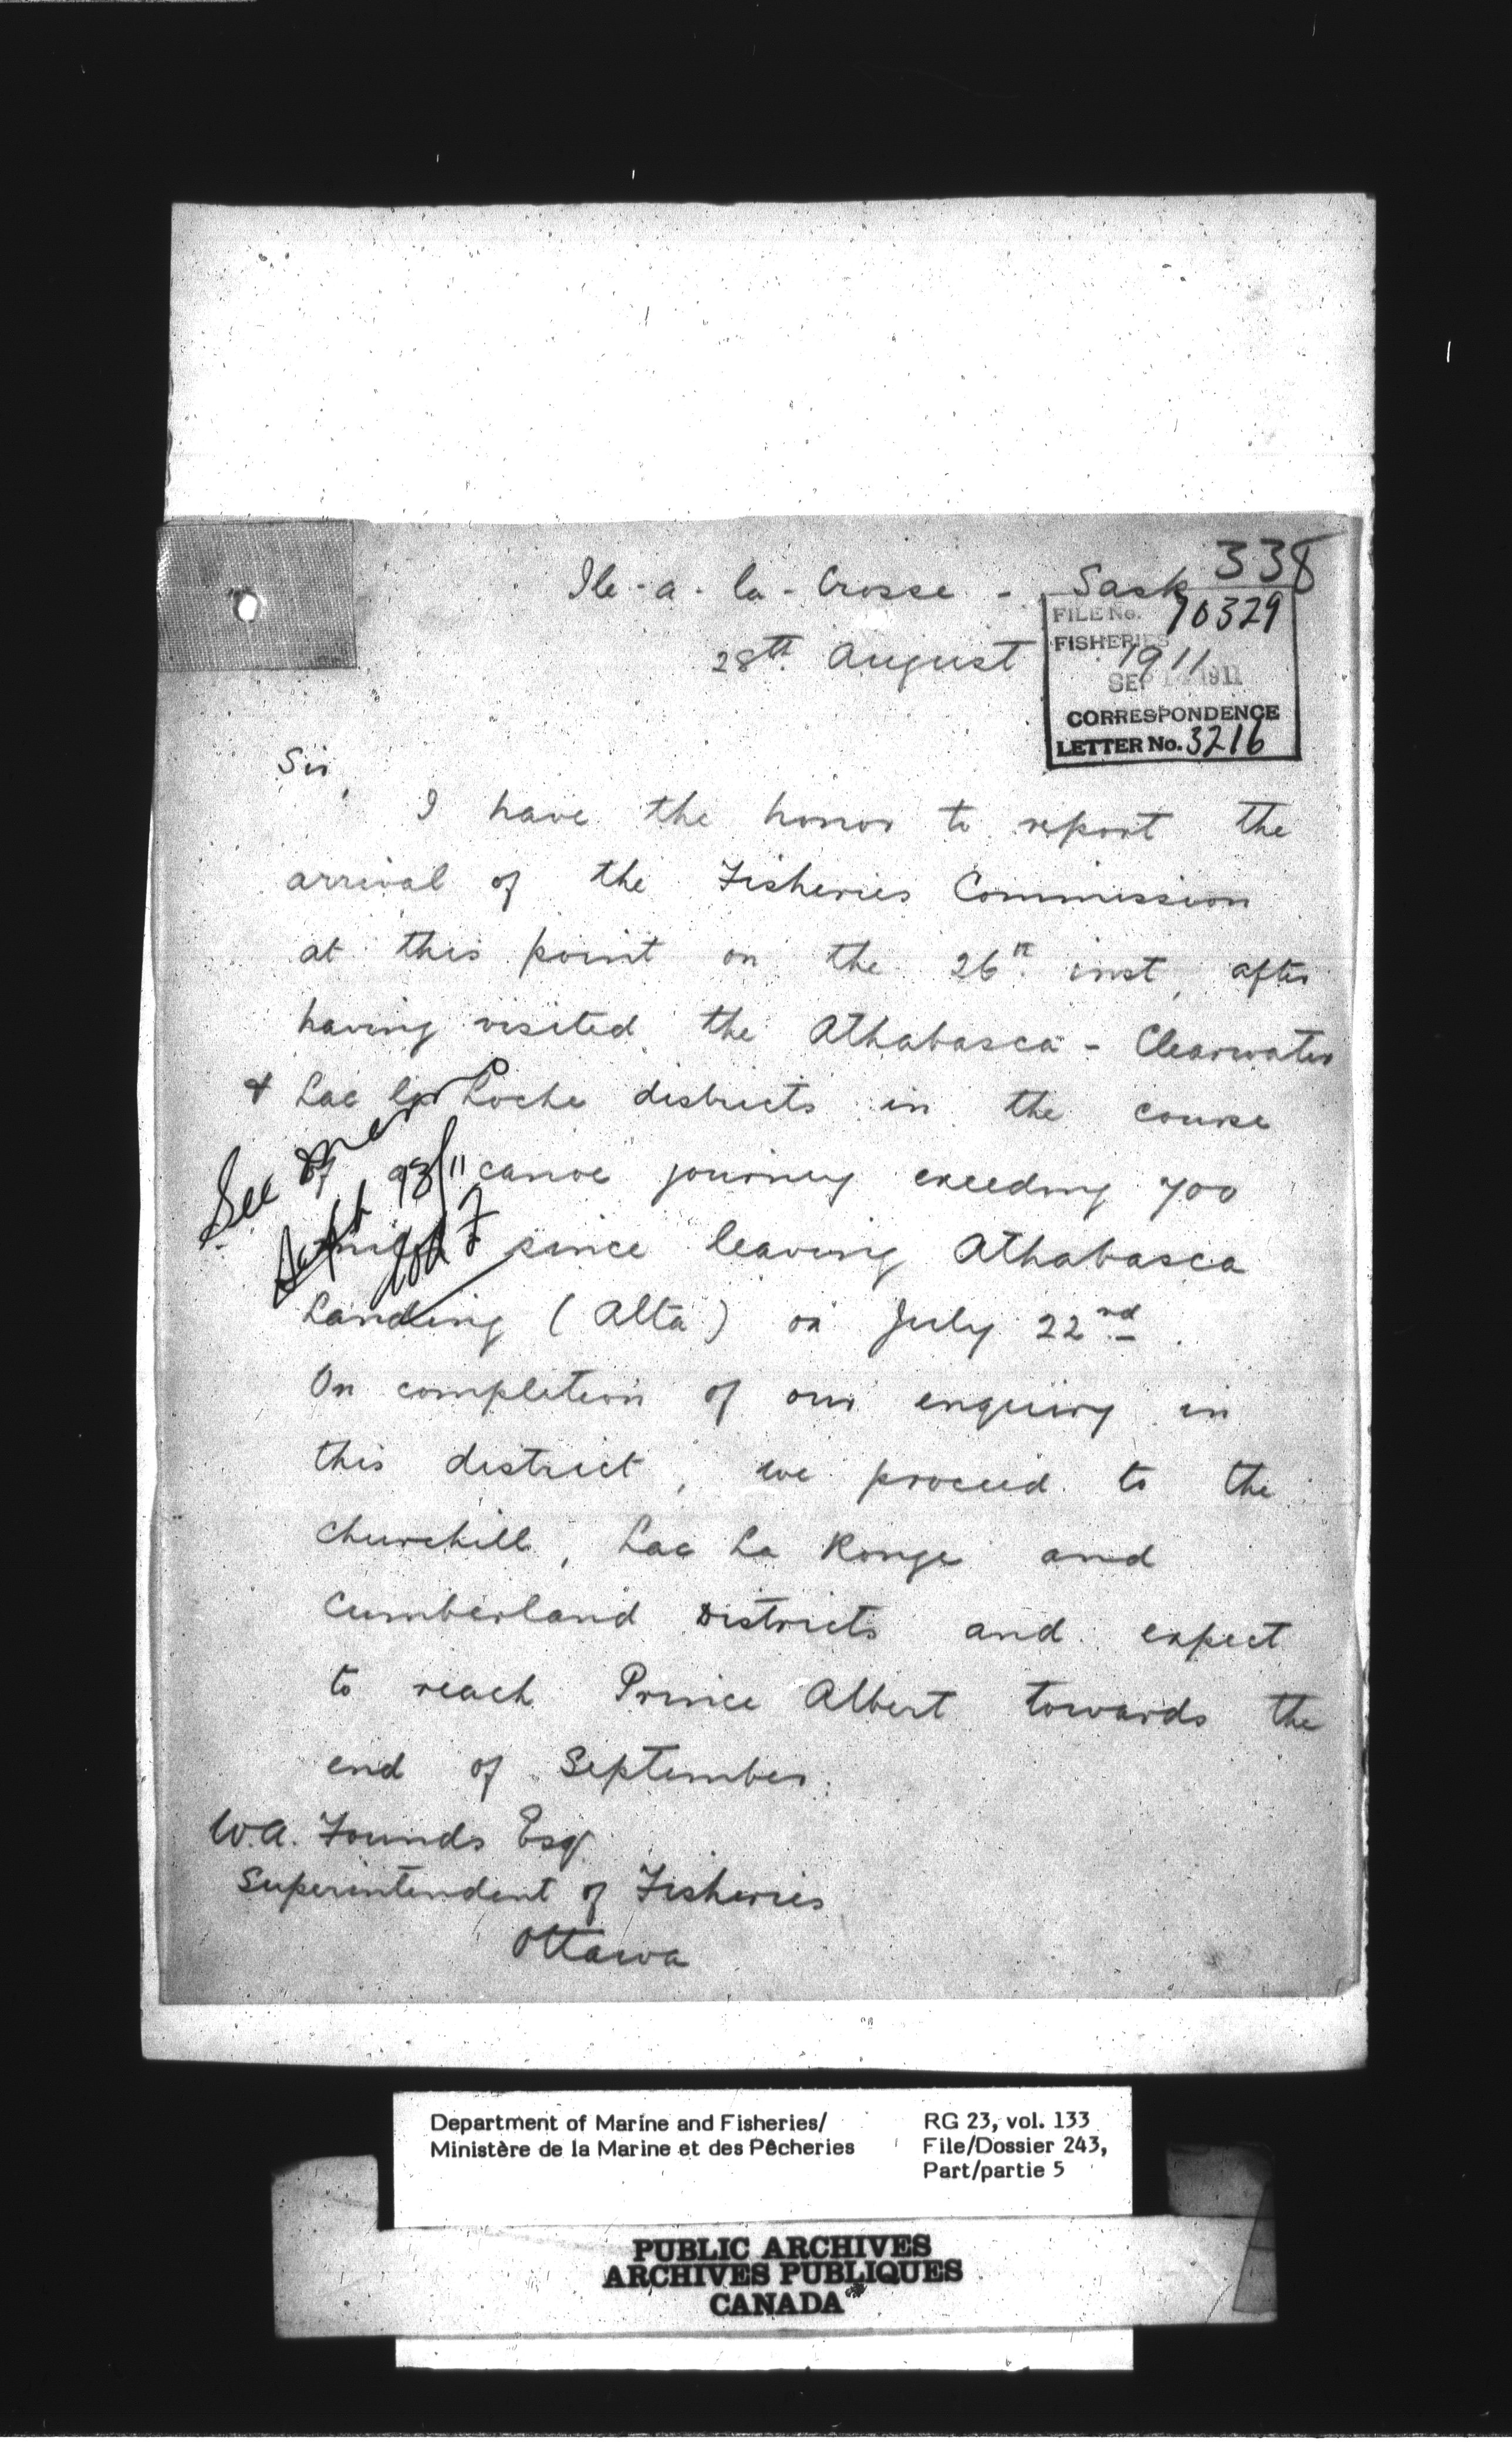 338
Ile-a-la-Crosse - Sask
FILE No. 70329
FISHERIES
28th August 1911
SEP 1911
CORRESPONDENCE
LETTER No. 3216
Sir,
I have the honor to report the
arrival of the Fisheries Commission
at this point on the 26th inst, after
having visited the Athabasca - Clearwater
& Lac la Loche districts in the course
of a canoe journey exceeding 700
miles since leaving Athabasca
Landing (Alta) on July 22nd.
See memo
Sept
On completion of our enquiry in
this district, we proceed to the
Churchill, Lac La Ronge and
Cumberland Districts and expect
to reach Prince Albert towards the
end of September.
W.A. Founds Esq.
Superintendent of Fisheries
Ottawa
Department of Marine and Fisheries/
Ministère de la Marine et des Pêcheries
RG 23, vol. 133
File/Dossier 243,
Part/partie 5
PUBLIC ARCHIVES
ARCHIVES PUBLIQUES
CANADA